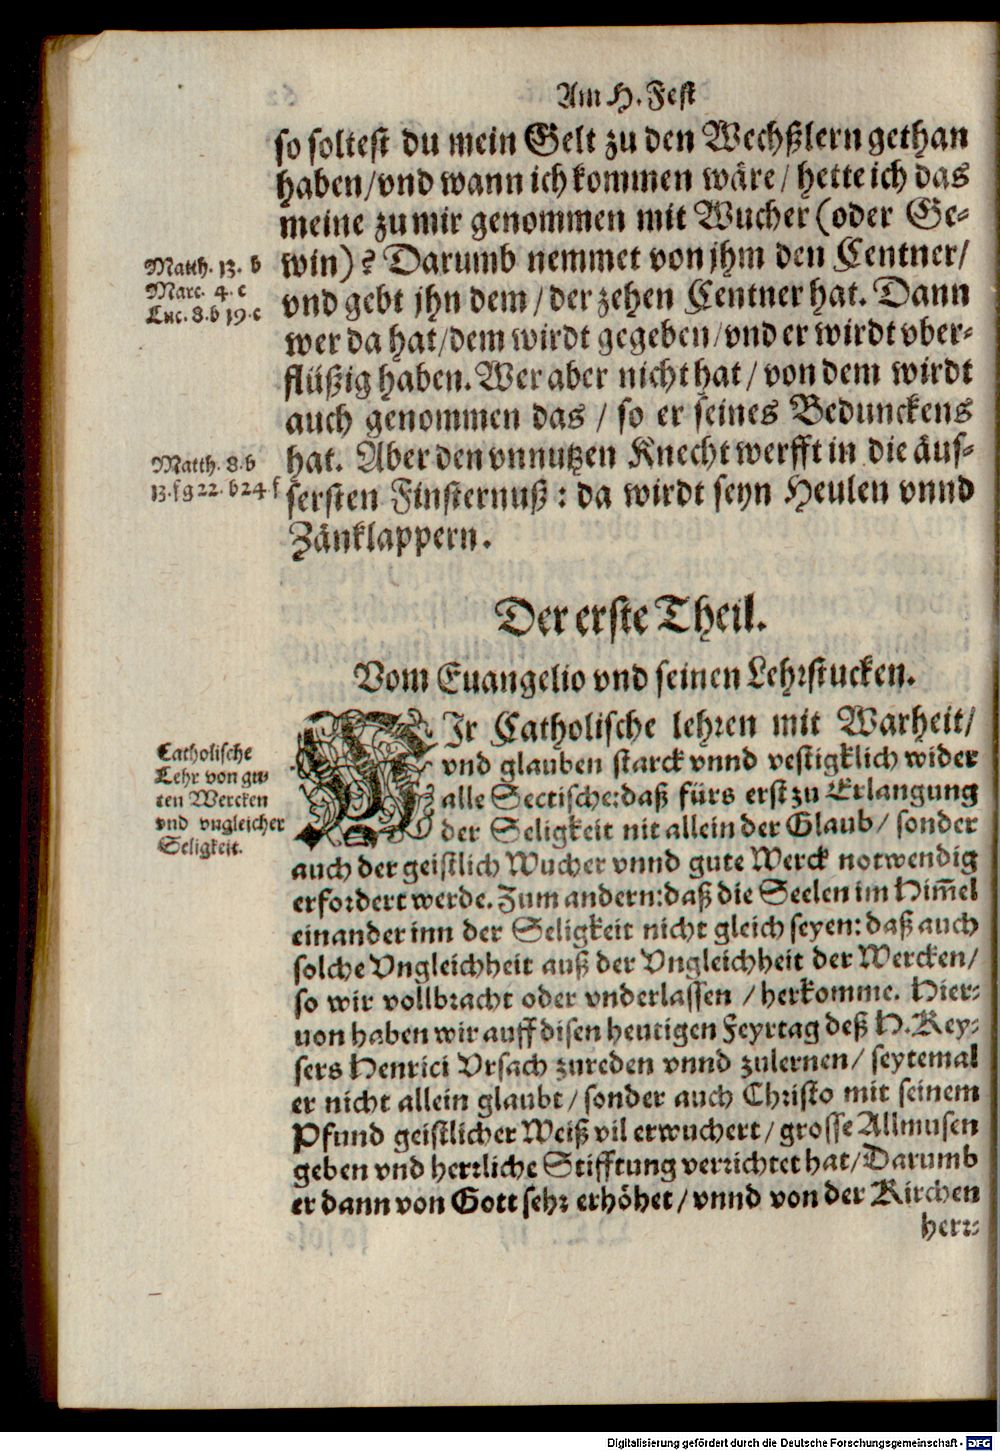 Am H. Fest
so soltest du mein Gelt zu den Wechßlern gethan
haben/vnd wann ich kommen wäre/ hette ich das
meine zu mir genommen mit Wucher (oder Ge-
win)? Darumb nemmet von jhm den Centner/
vnd gebt jhn dem/der zehen Centner hat. Dann
wer da hat/dem wirdt gegeben/vnd er wirdt vber-
flüßig haben. Wer aber nicht hat/ von dem wirdt
auch genommen das / so er seines Bedunckens
hat. Aber den vnnutzen Knecht werfft in die äus-
sersten Finsternuß : da wirdt seyn Heulen vnnd
Zänklappern.
Matth. 13. b
Marc. 4. c
Luc. 8. b 19. c
Matth. 8. b
13. f g 22. b 24 f
Der erste Theil.
Vom Euangelio vnd seinen Lehrstucken.
WJr Catholische lehren mit Warheit/
vnd glauben starck vnnd vestigklich wider
alle Sectische: daß fürs erst zu Erlangung
der Seligkeit nit allein der Glaub/ sonder
auch der geistlich Wucher vnnd gute Werck notwendig
erfordert werde. Zum andern: daß die Seelen im Him̄el
einander inn der Seligkeit nicht gleich seyen: daß auch
solche Vngleichheit auß der Vngleichheit der Wercken/
so wir vollbracht oder vnderlassen / herkomme. Hier-
uon haben wir auff disen heutigen Feyrtag deß H. Key-
sers Henrici Vrsach zureden vnnd zulernen/ seytemal
er nicht allein glaubt/ sonder auch Christo mit seinem
Pfund geistlicher Weiß vil erwuchert/ grosse Allmusen
geben vnd herrliche Stifftung verrichtet hat/ Darumb
er dann von Gott sehr erhöhet/ vnnd von der Kirchen
herr-
Catholische
Lehr von gu-
ten Wercken
vnd vngleicher
Seligkeit.
Digitalisierung gefördert durch die Deutsche Forschungsgemeinschaft - DFG